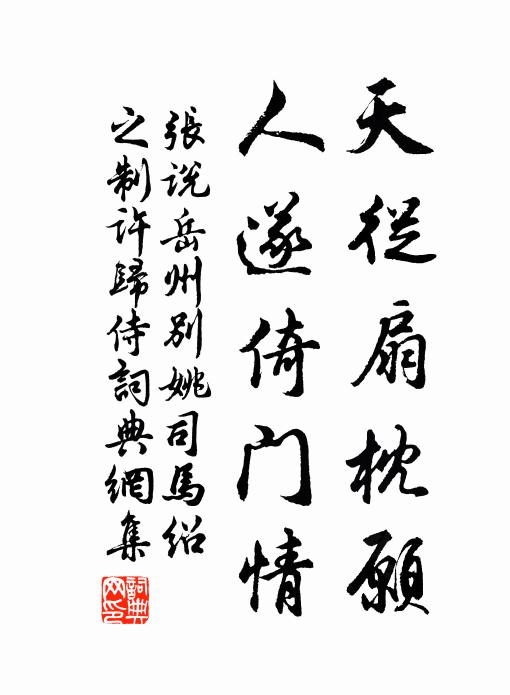 天從扇枕願
人遂倚門情
張說岳州別姚司馬紹
之制許歸侍詞典網集
詞典
网印